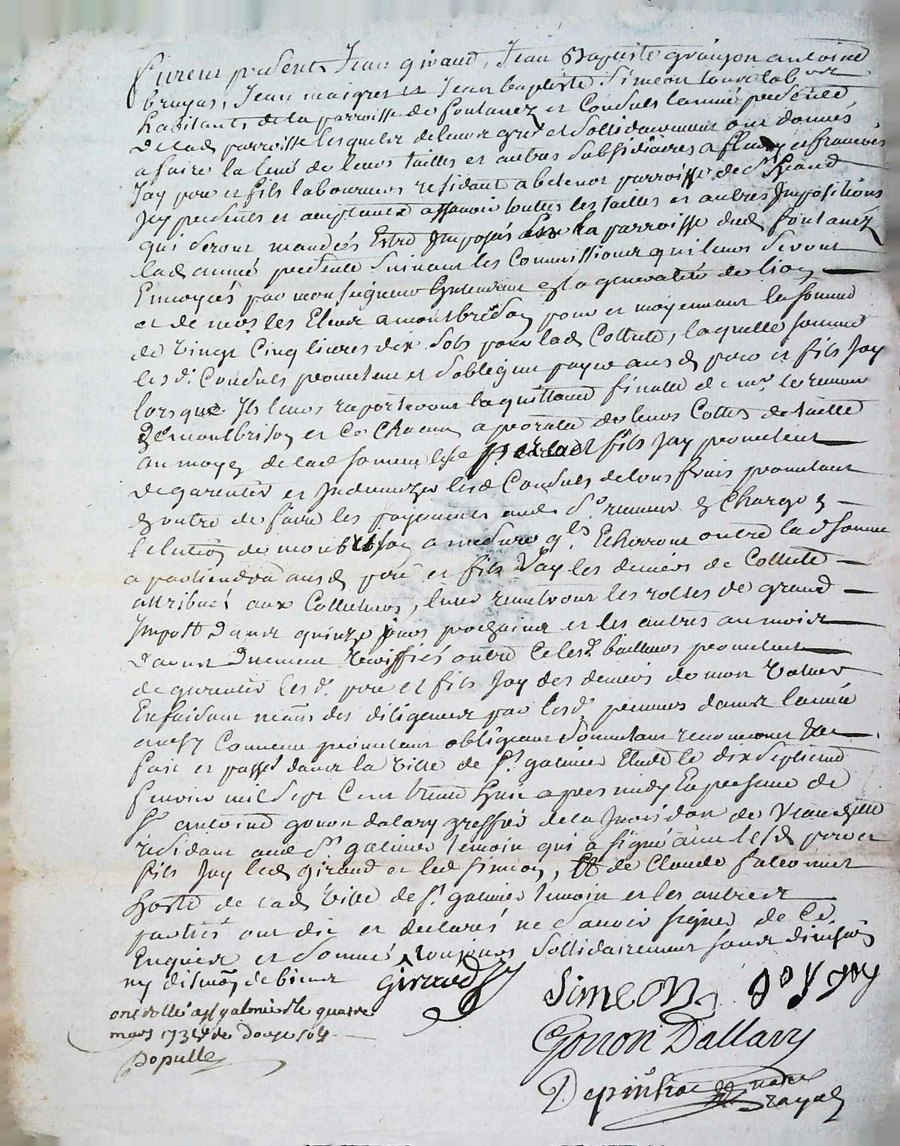 furent presents Jean giraud, Jean Baptiste granjon antoine
bruyas, Jean maigret et Jean baptiste Simeon tous lab
habitants de la parroisse de fontanez et Consuls lannée presente
de lad parroisse lesquelz de leurs gré et sollidairement ont donnés
a faire la levé de leurs tailles et autres subsidiaires a fleury et françois
Jay pere et fils laboureurs residant a parroisse de St heand
Jcy presents et acceptants assavoir toutes les tailles et autres Impositions
qui seront mandées Estre Jmposés sur la parroisse dud fontanez
lad année presente suivant les Commissions qui leurs seront
Envoyés par monseigneur Intendant de la generalité de lion
et de mrs les Eleus a montbrison pour et moyennant la somme
de vingt Cinq livres dix sols pour lad Collecte, laquelle somme
les d. Consuls promettent et sobligent payer aus d pere et fils Jay
lorsque Ils leurs raporteront la quittance finalle de mr. le receveur
de montbrison et Ce Chacun a porata de leurs Cottes de taille
au moyen de lad somme les pere et fils Jay promettent
de garentir et Jndemnizer les d Consuls de tous frais promettant
En outre de faire les payements aud Sr. receveur En Charge En
lelection de montbrison a mesure qls. Echerront outre la d somme
apartiendra aus d pere et fils Jay les deniers de Collecte
attribués aux Collecteurs, leurs remetront les rolles de grand
Jmpott dans quinze jours prochains et les autres au mois
daoust duement veriffiés outre Ce les d. bailleurs promettent
de garentir les d. pere et fils Jay des deniers de non valeur
En faisant neanms des diligences par les d. preneurs dans lannée
ainsy Convenu promettant obligeant soumettant renonceant &c
fait et passé dans la ville de St. galmier Etude le dix septieme
Janvier mil sept Cent trente huit apres midy En presence de
Sr antoine gonon dalary greffier de la Jurisdon de
residant aud St. galmier temoin qui a signé avec les d pere et
fils Jay led giraud et led Simeon, Et de Claude falconnet
hoste de lad ville de St. galmier temoin et les autres
parties ont dit et declarés ne scavoir signer de Ce
Enquis et sommé toujours sollidairement sans division
ny discuon de biens Giraud Jay
Simeon Jay
Gonon Dallary
controllé a st galmier le quatre
mars 1738 de douze sols